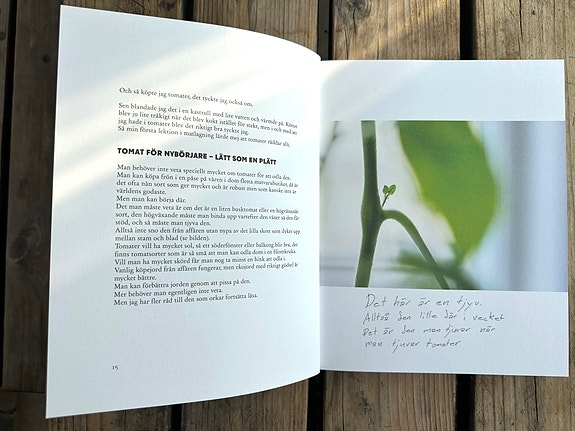 Och så köpte jag tomater, det tyckte jag också om.
Sen blandade jag det i en kastrull med lite vatten och värmde på. Köttet
blev ju lite tråkigt när det blev kokt istället för stekt, men i och med att
jag hade i tomater blev det riktigt bra tyckte jag.
Så min första lektion i matlagning lärde mej att tomater räddar allt.
TOMAT FÖR NYBÖRJARE – LÄTT SOM EN PLÄTT
Man behöver inte veta speciellt mycket om tomater för att odla den.
Man kan köpa frön i en påse på våren i dom flesta matvarubutiker, då är
det ofta nån sort som ger mycket och är robust men som kanske inte är
världens godaste.
Men man kan börja där.
Det man måste veta är om det är en liten busktomat eller en högväxande
sort, den högväxande måste man binda upp vartefter den växer så den får
stöd, och så måste man tjyva den.
Alltså inte sno den från affären utan nypa av det lilla skott som dyker upp
mellan stam och blad (se bilden).
Tomater vill ha mycket sol, så ett söderfönster eller balkong blir bra, det
finns tomatsorter som är så små att man kan odla dom i en blomkruka.
Vill man ha mycket skörd får man nog ta minst en hink att odla i.
Vanlig köpejord från affären fungerar, men ekojord med riktigt gödsel är
mycket bättre.
Man kan förbättra jorden genom att pissa på den.
Mer behöver man egentligen inte veta.
Men jag har fler råd till den som orkar fortsätta läsa.
15
Det här är en tjyv.
Alltså den lilla där i vecket
Det är den man tjuvar när
man tjuvar tomater